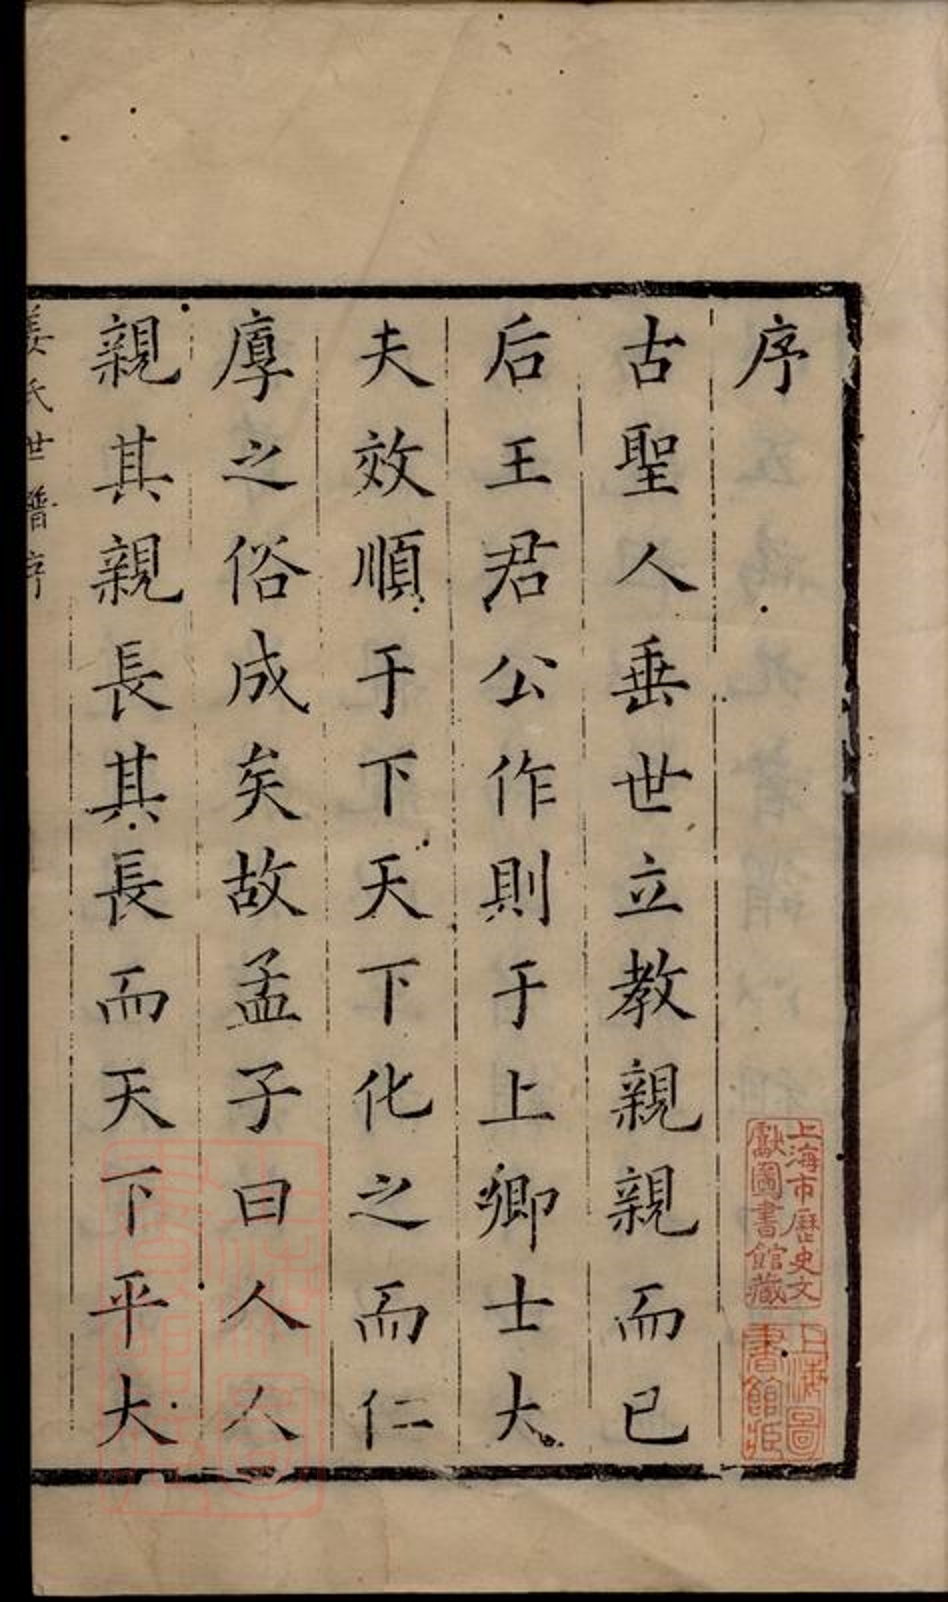 序
古聖人垂世立教親親而已
后王君公作則于上卿士大
夫效順于下天下化之而仁
厚之俗成矣故孟子曰人人
親其親長其長而天下平大
姜氏世譜序
上海市歷史文
獻圖書館藏
上海圖
書館藏